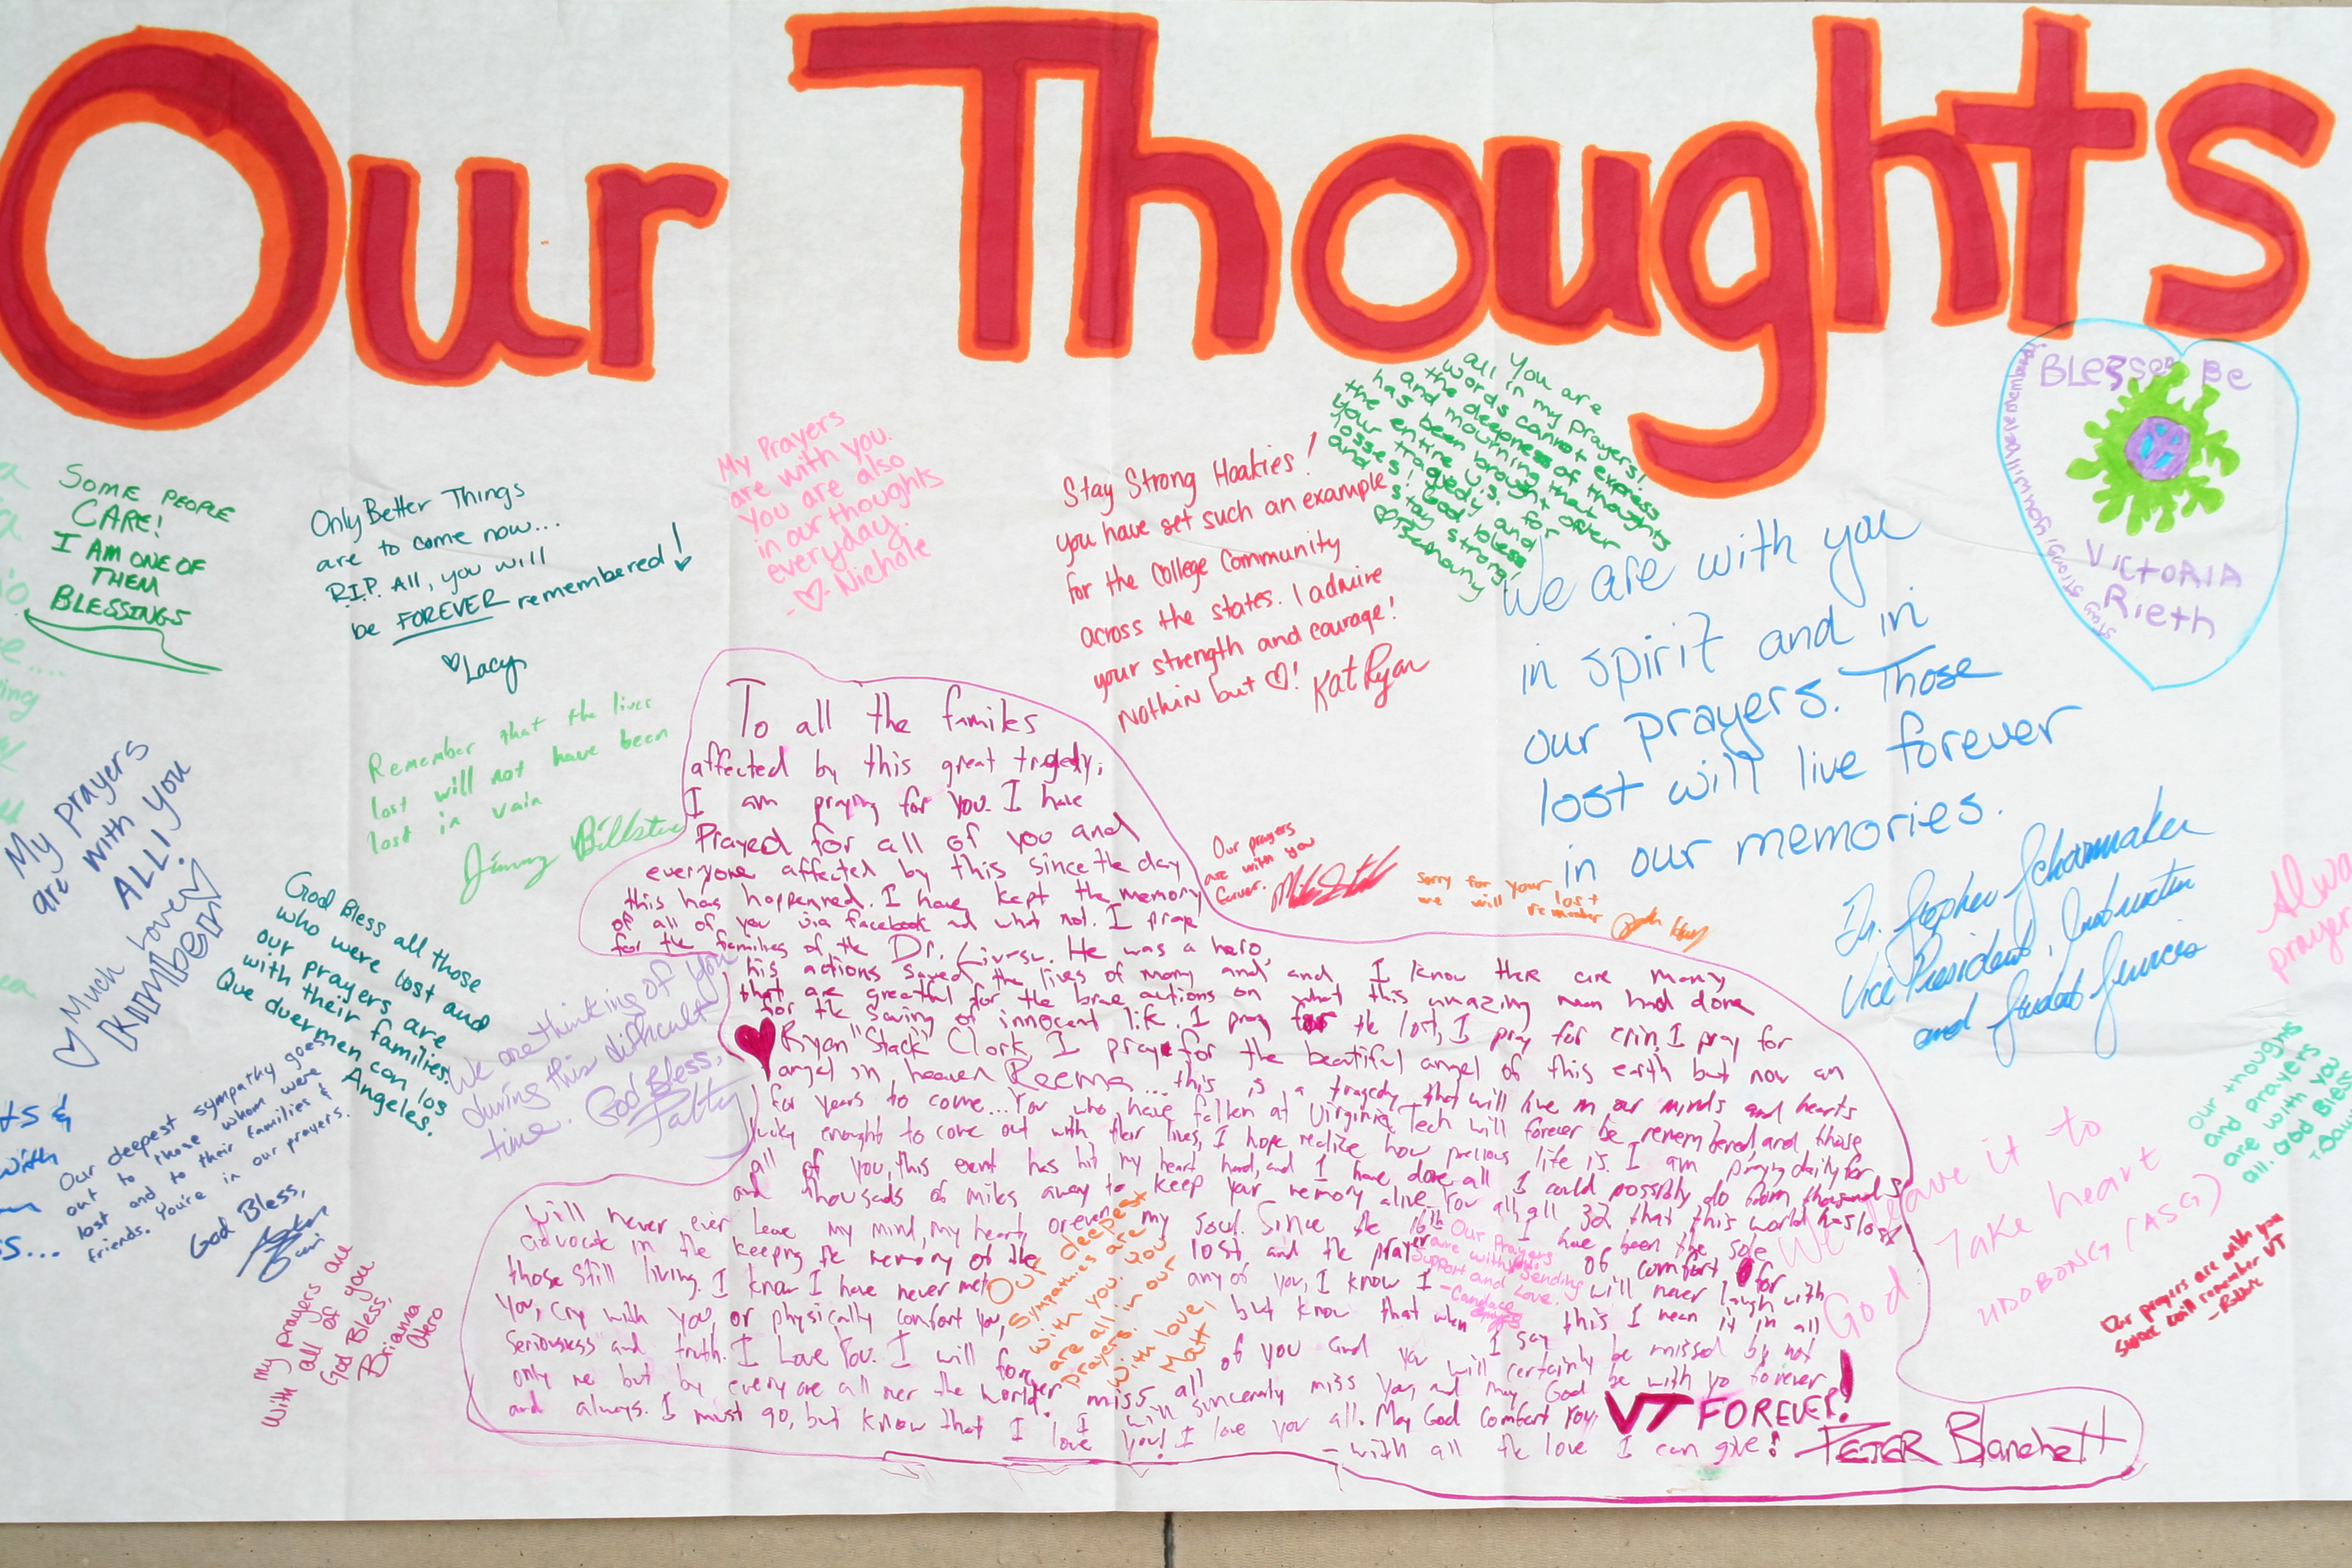 Our Thoughts
SOME PEOPLE
CARE!
I AM ONE OF
THEM
BLESSINGS
Only Better Things
are to come now...
R.I.P. All, you will
be FOREVER remembered!
♡Lacy
My Prayers
are with you.
You are also
in our thoughts
everyday.
-♡-Nichole
Stay Strong Hoakies!
you have set such an example
for the College Community
across the states. I admire
your strength and courage!
Nothin but ♡! Kat Ryan
You are
all in my prayers!
words cannot express
the deepness of thoughts
and mourning that
has been brought over
the entire U.S. for
your tragedy and
losses! God bless
and stay strong!
BLESSED BE
VICTORIA
Rieth
stay strong! you will be remembered!
We are with you
in spirit and in
our prayers. Those
lost will live forever
in our memories.
Dr. Stephen
Vice President, Instruction
and Student Services
Remember that the lives
lost will not have been
lost in vain
Jimmy
My prayers
are with
ALL! you
♡Much Love,
Kimber♡
God Bless all those
who were lost and
our prayers are
with their families.
Que duermen con los
Angeles.
We are thinking of you
during this difficult
time. God Bless,
Patty
Our deepest sympathy goes
out to those whom were
lost and to their families &
friends. You're in our prayers.
God Bless,
My prayers are
with all of you
God Bless,
Brianna
Otero
Our prayers
are with you
forever.
sorry for your lost
we will remember
To all the familes
affected by this great tragedy,
I am praying for you. I have
Prayed for all of you and
everyone affected by this since the day
this has happenned. I have kept the memory
of all of you via facebook and what not. I pray
for the families of the Dr. He was a hero,
his actions saved the lives of many and and I know there are many
that are greatful for the brave actions on what this amazing man had done
for the saving of innocent life. I pray for the lost, I pray for erin, I pray for
Ryan "Stack" Clark, I pray for the beautiful angel of this earth but now an
angel in heaven Reema... this is a tragedy that will live in our minds and hearts
for years to come... You who have fallen at Virginia Tech will forever be remembered, and those
lucky enough to come out with their lives, I hope realize how precious life is. I am praying daily for
all of you, this event has hit my heart hard, and I have done all I could possibly do from thousands
and thousads of miles away to keep your memory alive. You all, all 32 that this world has lost
will never ever leave my mind, my heart, or even my soul. Since the 16th I have been the sole
advocate in the keeping the memory of the lost and the prayer of comfort for
those still living. I know I have never met any of you, I know I will never laugh with
you, cry with you, or physically comfort you, but know that when I say this I mean it in all
seriousness and truth. I Love You. I will forever miss all of you and you will certainly be missed by not
only me but by everyone all over the world. I will sincerely miss you, and may God be with yo forever
and always. I must go, but know that I love you! I love you all. May God comfort you, VT FOREVER!
- with all the love I can give! PETER Blanchett
Our deepest
Sympathies are
with you. You
are all in our
prayers.
with love,
Matt
Our Prayers
are with you.
Sending
Support and Love.
-Candace
We leave it to
God
Take heart
UDOBONG (ASG)
Our thoughts
and prayers
are with you
all. God Bless
Our prayers are with you
will remember VT
Always
prayer